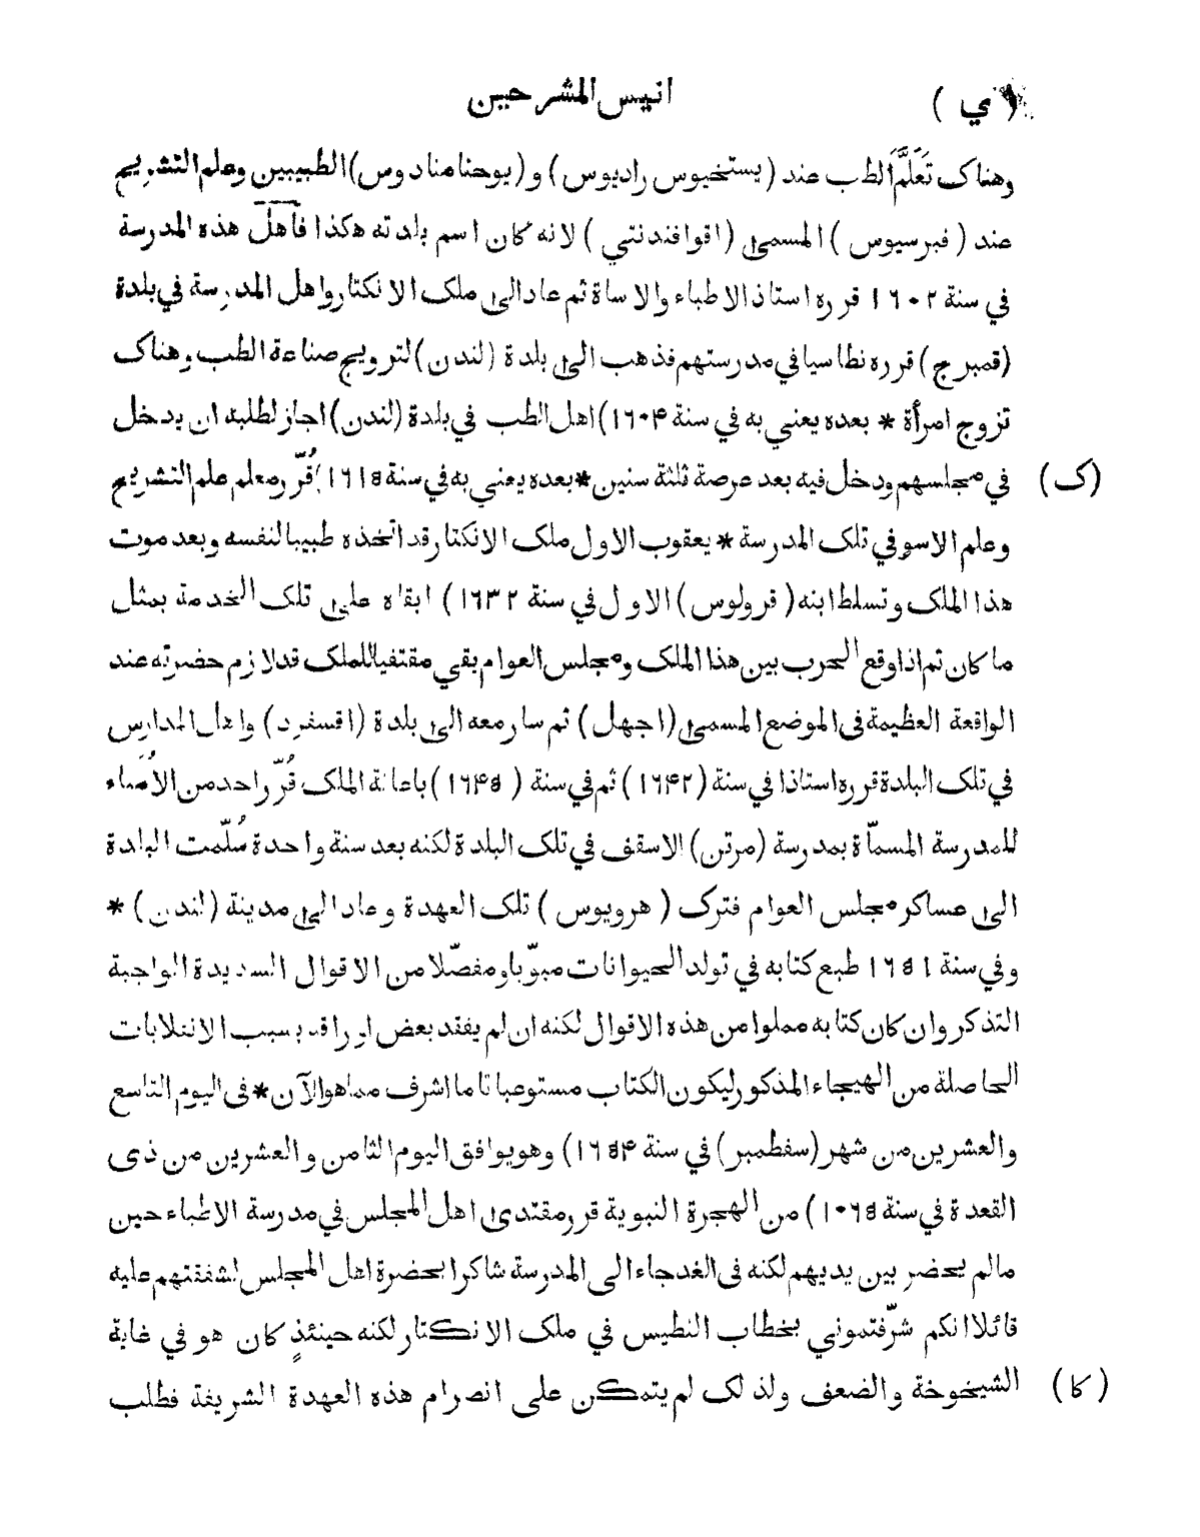 (ي) انيس المشرحين
وهناك تَعَلَّمَ الطب عند (يستخيوس راديوس) و (يوحنا منادوس) الطبيبين وعلم التشريح
عند (فبرسيوس) المسمى (اقوافندنتي) لانه كان اسم بلدته هكذا فآهل هذه المدرسة
في سنة ١٦٠٢ قرره استاذ الاطباء والاساة ثم عاد الى ملك الانكتار واهل المدرسة في بلدة
(قمبرج) قرره نطاسيا في مدرستهم فذهب الى بلدة (لندن) لترويج صناعة الطب وهناك
تزوج امرأة * بعده يعني به في سنة ١٦٠۴) اهل الطب في بلدة (لندن) اجاز لطلبه ان يدخل
(ك) في مجلسهم ودخل فيه بعد عرصة ثلثة سنين * بعده يعني به في سنة ١٦١۵) قُرّر معلم علم التشريح
وعلم الاسو في تلك المدرسة * يعقوب الاول ملك الانكتار قد اتخذه طبيبا لنفسه وبعد موت
هذا الملك وتسلط ابنه (قرولوس) الاول في سنة ١٦٣٢) ابقاه على تلك الخدمة بمثل
ما كان ثم اذا وقع الحرب بين هذا الملك ومجلس العوام بقي مقتفيا للملك قد لازم حضرته عند
الواقعة العظيمة فى الموضع المسمى (اجهل) ثم سار معه الى بلدة (اقسفرد) واهل المدارس
في تلك البلدة قرره استاذا في سنة (١٦۴٢) ثم في سنة (١٦۴۵) باعانة الملك قُرّر واحد من الأُمَناء
للمدرسة المسمّاة بمدرسة (مرتن) الاسقف في تلك البلدة لكنه بعد سنة واحدة سُلّمت البلدة
الى عساكر مجلس العوام فترك (هرويوس) تلك العهدة وعاد الى مدينة (لندن) *
وفي سنة ١٦۵١ طبع كتابه في تولد الحيوانات مبوّبا ومفصّلا من الاقوال السديدة الواجبة
التذكر وان كان كتابه مملوا من هذه الاقوال لكنه ان لم يفقد بعض اوراقه بسبب الانقلابات
الحاصلة من الهيجاء المذكور ليكون الكتاب مستوعبا تاما اشرف مما هو الآن * فى اليوم التاسع
والعشرين من شهر (سفطمبر) في سنة ١٦۵۴) وهو يوافق اليوم الثامن والعشرين من ذى
القعدة في سنة ١٠٦۵) من الهجرة النبوية قرر مقتدى اهل المجلس في مدرسة الاطباء حين
مالم يحضر بين يديهم لكنه فى الغد جاء الى المدرسة شاكرا بحضرة اهل المجلس لشفقتهم عليه
قائلا انكم شرّفتموني بخطاب النطيس في ملك الانكتار لكنه حينئذٍ كان هو في غاية
(كا) الشيخوخة والضعف ولذلك لم يتمكن على انصرام هذه العهدة الشريفة فطلب